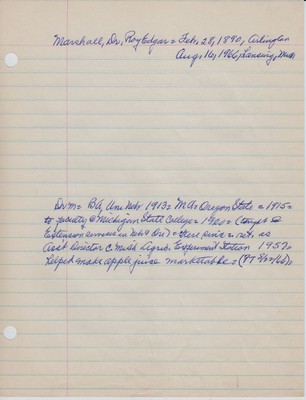 Marshall, Dr. Roy Edgar = Feb. 28, 1890, Arlington
Aug. 16, 1966, Lansing, Mich
= BA, Uni Nebr 1913 = MA = Oregon State = 1915 =
to faculty @ Michigan State College =
Extension service in Nebr & Ore) = = ret. as
Asst Director Agric. Experiment Station 1957,
Helped make apple juice marketable =